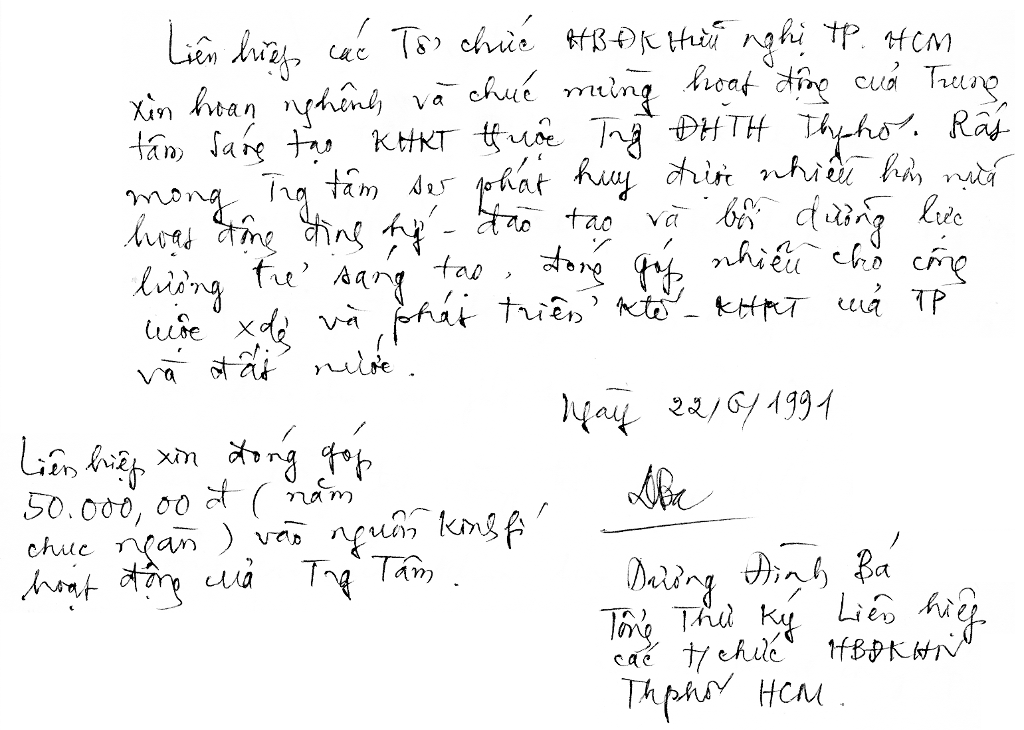 Liên hiệp các Tổ chức HBĐK Hữu nghị TP. HCM
xin hoan nghênh và chúc mừng hoạt động của Trung
tâm Sáng tạo KHKT thuộc Trg ĐHTH Thphố. Rất
mong Trg tâm sẽ phát huy được nhiều hơn nữa
hoạt động - đào tạo và bồi dưỡng lực
lượng trẻ sáng tạo, đóng góp nhiều cho công
cuộc xdg và phát triển Ktế - KHKT của TP
và đất nước.
Ngày 22/6/1991
Liên hiệp xin đóng góp
50.000,00 đ (năm
chục ngàn) vào nguồn
hoạt động của Trg Tâm.
Dương Đình Bá
Tổng Thư Ký Liên hiệp
các t/chức HBĐKHN
Thphố HCM.